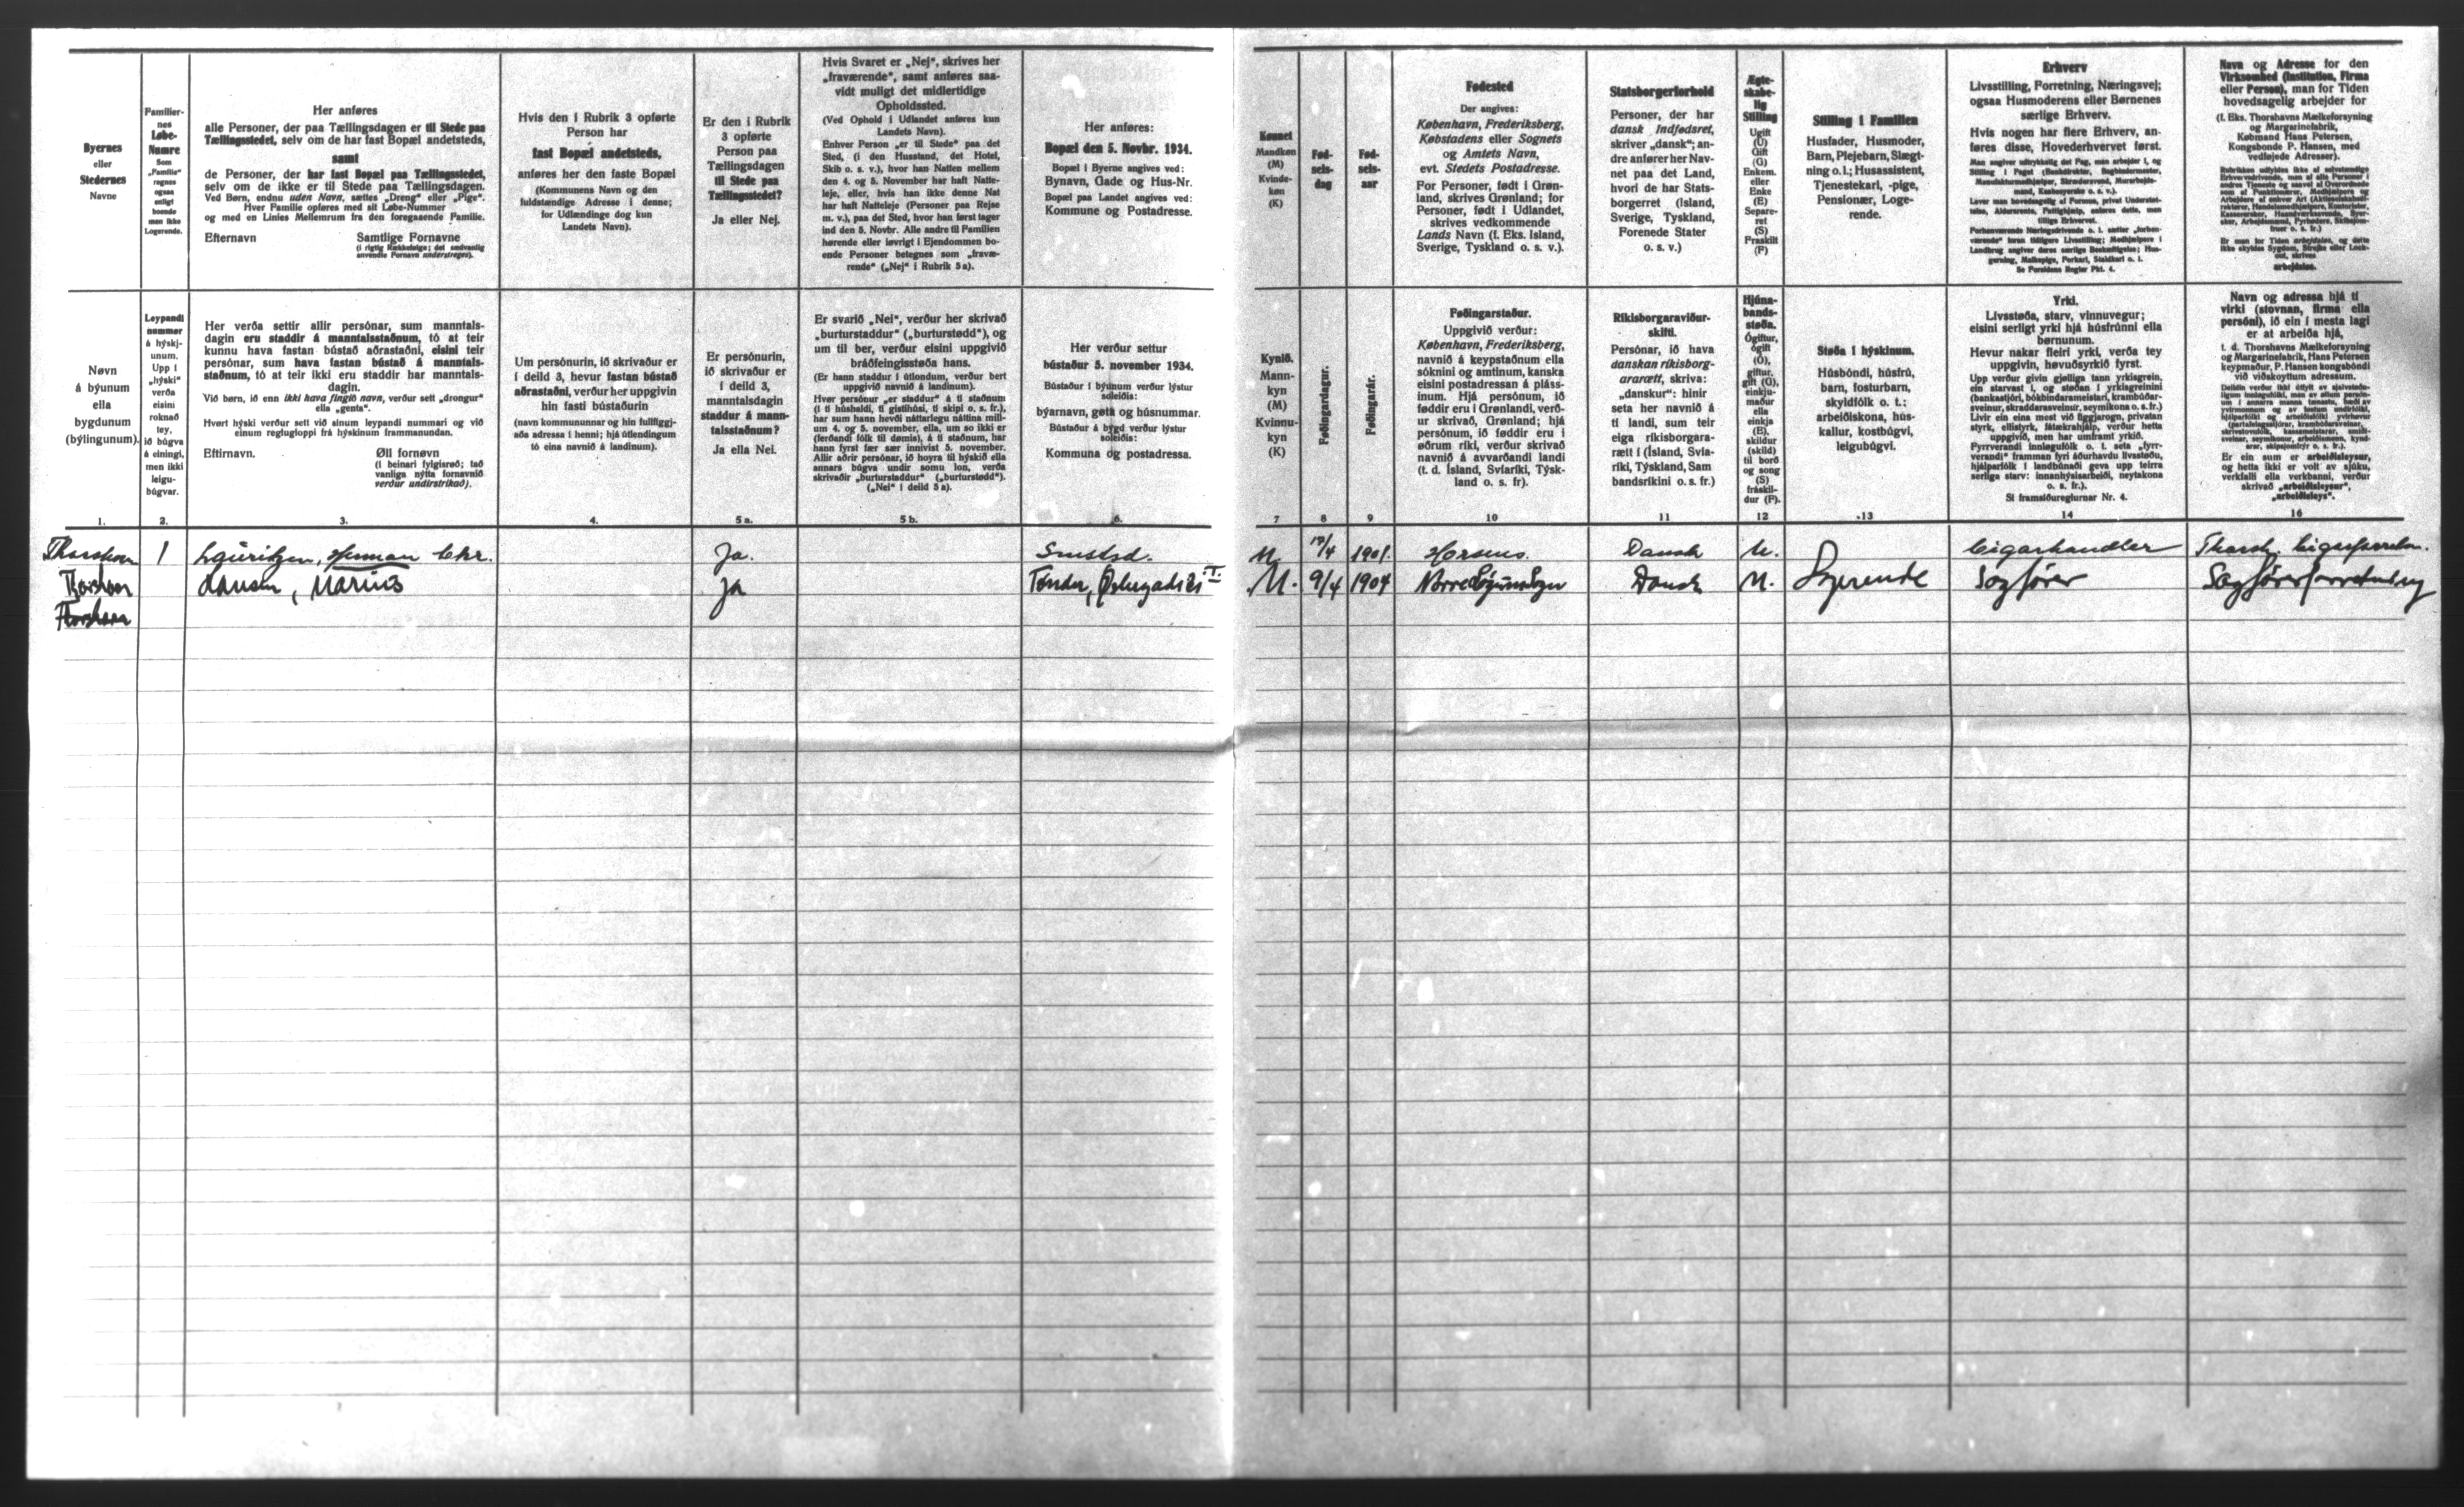 Byernes
eller
Stedernes
Navne
Familier-
nes
Løbe-
Numre
Som
„Familie“
regnes
ogsaa
enligt
boende
men ikke
Logerende.
Her anføres
alle Personer, der paa Tællingsdagen er til Stede paa
Tællingsstedet, selv om de har fast Bopæl andetsteds,
samt
de Personer, der har fast Bopæl paa Tællingsstedet,
selv om de ikke er til Stede paa Tællingsdagen.
Ved Børn, endnu uden Navn, sættes „Dreng“ eller „Pige“.
Hver Familie opføres med sit Løbe-Nummer
og med en Linies Mellemrum fra den foregaaende Familie.
Efternavn Samtlige Fornavne
(i rigtig Rækkefølge; det sædvanlig
anvendte Fornavn understreges).
Hvis den i Rubrik 3 opførte
Person har
fast Bopæl andetsteds,
anføres her den faste Bopæl
(Kommunens Navn og den
fuldstændige Adresse i denne;
for Udlændinge dog kun
Landets Navn).
Er den i Rubrik
3 opførte
Person paa
Tællingsdagen
til Stede paa
Tællingsstedet?
Ja eller Nej.
Hvis Svaret er „Nej“, skrives her
„fraværende“, samt anføres saa-
vidt muligt det midlertidige
Opholdssted.
(Ved Ophold i Udlandet anføres kun
Landets Navn).
Enhver Person „er til Stede“ paa det
Sted, (i den Husstand, det Hotel,
Skib o. s. v.), hvor han Natten mellem
den 4. og 5. November har haft Natte-
leje, eller, hvis han ikke denne Nat
har haft Natteleje (Personer paa Rejse
m. v.), paa det Sted, hvor han først tager
ind den 5. Novbr. Alle andre til Familien
hørende eller iøvrigt i Ejendommen bo-
ende Personer betegnes som „fravæ-
rende“ („Nej“ i Rubrik 5a).
Her anføres:
Bopæl den 5. Novbr. 1934.
Bopæl i Byerne angives ved:
Bynavn, Gade og Hus-Nr.
Bopæl paa Landet angives ved:
Kommune og Postadresse.
Kønnet
Mandkøn
(M)
Kvinde-
køn
(K)
Fød-
sels-
dag
Fød-
sels-
aar
Fødested
Der angives:
København, Frederiksberg,
Købstadens eller Sognets
og Amtets Navn,
evt. Stedets Postadresse.
For Personer, født i Grøn-
land, skrives Grønland; for
Personer, født i Udlandet,
skrives vedkommende
Lands Navn (f. Eks. Island,
Sverige, Tyskland o. s. v.).
Statsborgerforhold
Personer, der har
dansk Indfødsret,
skriver „dansk“; an-
dre anfører her Nav-
net paa det Land,
hvori de har Stats-
borgerret (Island,
Sverige, Tyskland,
Forenede Stater
o. s. v.)
Ægte-
skabe-
lig
Stilling
Ugift
(U)
Gift
(G)
Enkem.
eller
Enke
(E)
Separe-
ret
(S)
Fraskilt
(F)
Stilling i Familien
Husfader, Husmoder,
Barn, Plejebarn, Slægt-
ning o. l.; Husassistent,
Tjenestekarl, -pige,
Pensionær, Loge-
rende.
Erhverv
Livsstilling, Forretning, Næringsvej;
ogsaa Husmoderens eller Børnenes
særlige Erhverv.
Hvis nogen har flere Erhverv, an-
føres disse, Hovederhvervet først.
Se Forsidens Regler Pkt. 4.
Navn og Adresse for den
Virksomhed (Institution, Firma
eller Person), man for Tiden
hovedsagelig arbejder for
(f. Eks. Thorshavns Mælkeforsyning
og Margarinefabrik,
Købmand Hans Petersen,
Kongsbonde P. Hansen, med
vedføjede Adresser).
Er man for Tiden arbejdsløs, og dette
ikke skyldes Sygdom, Strejke eller Lock-
out, skrives
arbejdsløs.
Nøvn
á býunum
ella
bygdunum
(býlingunum).
Leypandi
nummer
á hýskj-
unum.
Upp í
„hýski“
verða
eisini
roknað
tey,
ið búgva
á eini­ngi,
men ikki
leigu-
búgvar.
Her verða settir allir persónar, sum manntals-
dagin eru staddir á manntalsstaðnum, tó at teir
kunnu hava fastan bústað aðrastaðni, eisini teir
persónar, sum hava fastan bústað á manntals-
staðnum, tó at teir ikki eru staddir har manntals-
dagin.
Við børn, ið enn ikki hava fingið navn, verður sett „drongur“
ella „genta“.
Hvørt hýski verður sett við sínum leypandi nummari og við
einum reglugloppi frá hýskinum frammanundan.
Eftirnavn. Øll fornøvn
(í beinari fylgisrøð; tað
vanliga nýtta fornavnið
verður undirstrikað).
Um persónurin, ið skrivaður er
í deild 3, hevur fastan bústað
aðrastaðni, verður her uppgivin
hin fasti bústaðurin
(navn kommununnar og hin fullfíggj-
aða adressa í henni; hjá útlendingum
tó eina navnið á landinum).
Er persónurin,
ið skrivaður er
í deild 3,
manntalsdagin
staddur á mann-
talsstaðnum?
Ja ella Nei.
Er svarið „Nei“, verður her skrivað
„burturstaddur“ („burturstødd“), og
um til ber, verður eisini uppgivið
bráðfeingisstøða hans.
(Er hann staddur í útlondum, verður bert
uppgivið navnið á landinum).
Hvør persónur „er staddur“ á tí staðnum
(í tí húshaldi, tí gistihúsi, tí skipi o. s. fr.),
har sum hann hevði náttarlegu náttina mill-
um 4. og 5. november, ella, um so ikki er
(ferðandi fólk til dømis), á tí staðnum, har
hann fyrst fær sær innivist 5. november.
Allir aðrir persónar, ið hoyra til hýskið ella
annars búgva undir somu lon, verða
skrivaðir „burturstaddur“ („burturstødd“).
(„Nei“ í deild 5 a).
Her verður settur
bústaður 5. november 1934.
Bústaður í býunum verður lýstur
soleiðis:
býarnavn, gøta og húsnummar.
Bústaður á bygd verður lýstur
soleiðis:
Kommuna og postadressa.
Kynið.
Mann-
kyn
(M)
Kvinnu-
kyn
(K)
Føðingardagur.
Føðingarár.
Føðingarstaður.
Uppgivið verður:
København, Frederiksberg,
navnið á keypstaðnum ella
sóknini og amtinum, kanska
eisini postadressan á pláss-
inum. Hjá persónum, ið
føddir eru í Grønlandi, verð-
ur skrivað, Grønland; hjá
persónum, ið føddir eru í
øðrum ríki, verður skrivað
navnið á avvarðandi landi
(t. d. Ísland, Svíaríki, Týsk-
land o. s. fr).
Ríkisborgaraviður-
skifti.
Persónar, ið hava
danskan ríkisborg-
ararætt, skriva:
„danskur“: hinir
seta her navnið á
tí landi, sum teir
eiga ríkisborgara-
rætt í (Ísland, Svía-
ríki, Týskland, Sam
bandsríkini o. s. fr.)
Hjúna-
bands-
støða.
Ógiftur,
ógift
(Ó),
giftur,
gift (G),
einkju-
maður
ella
einkja
(E),
skildur
(skild)
til borð
og song
(S)
fráskil-
dur (F).
Støða í hýskinum.
Húsbóndi, húsfrú,
barn, fosturbarn,
skyldfólk o. t.;
arbeiðiskona, hús-
kallur, kostbúgvi,
leigubúgvi.
Yrki.
Livsstøða, starv, vinnuvegur;
eisini serligt yrki hjá húsfrúnni ella
børnunum.
Hevur nakar fleiri yrki, verða tey
uppgivin, høvuðsyrkið fyrst.
Upp verður givin gjølliga tann yrkisgrein,
ein starvast í, og støðan í yrkisgreinini
(bankastjóri, bókbindarameistari, krambúðar-
sveinur, skraddarasveinur, seymikona o. s. fr.)
Livir ein eina mest við íggjarogn, privatan
styrk, ellistyrk, fátækrahjálp, verður hetta
uppgivið, men har umframt yrkið.
Pyrrverandi innlegufólk o. t. seta „fyrr-
verandi“ framman fyri áðurhavdu livsstøðu,
hjálparfólk í landbúnaði geva upp teirra
serliga starv: innanhýsisarbeiði, neytakona
o. s. fr.).
Sí framsíðureglurnar Nr. 4.
Navn og adressa hjá tí
virki (stovnan, firma ella
persóni), ið ein í mesta lagi
er at arbeiða hjá,
t. d. Thorshavns Mælkeforsyning
og Margarinefabrik, Hans Petersen
keypmaður, P. Hansen kongsbóndi
við viðskoyttum adressum.
Er ein sum er arbeiðsleysur,
og hetta ikki er volt av sjúku,
verkfalli ella verkbanni, verður
skrivað „arbeiðsleysur“,
„arbeiðsleys“.
1. 2. 3. 4. 5 a. 5 b. 6. 7 8 9 10 11 12 13 14 16
Thorshavn 1 Lauritzen, Herman Chr. Ja. M. 1901. Horsens. Dansk U. Cigarhandler Thorsh.
Thorshavn Hansen, Marius Ja Tønder, M. 9/4 1904 Dansk Logerende Sagfører Sagførerforretning
Thorshavn